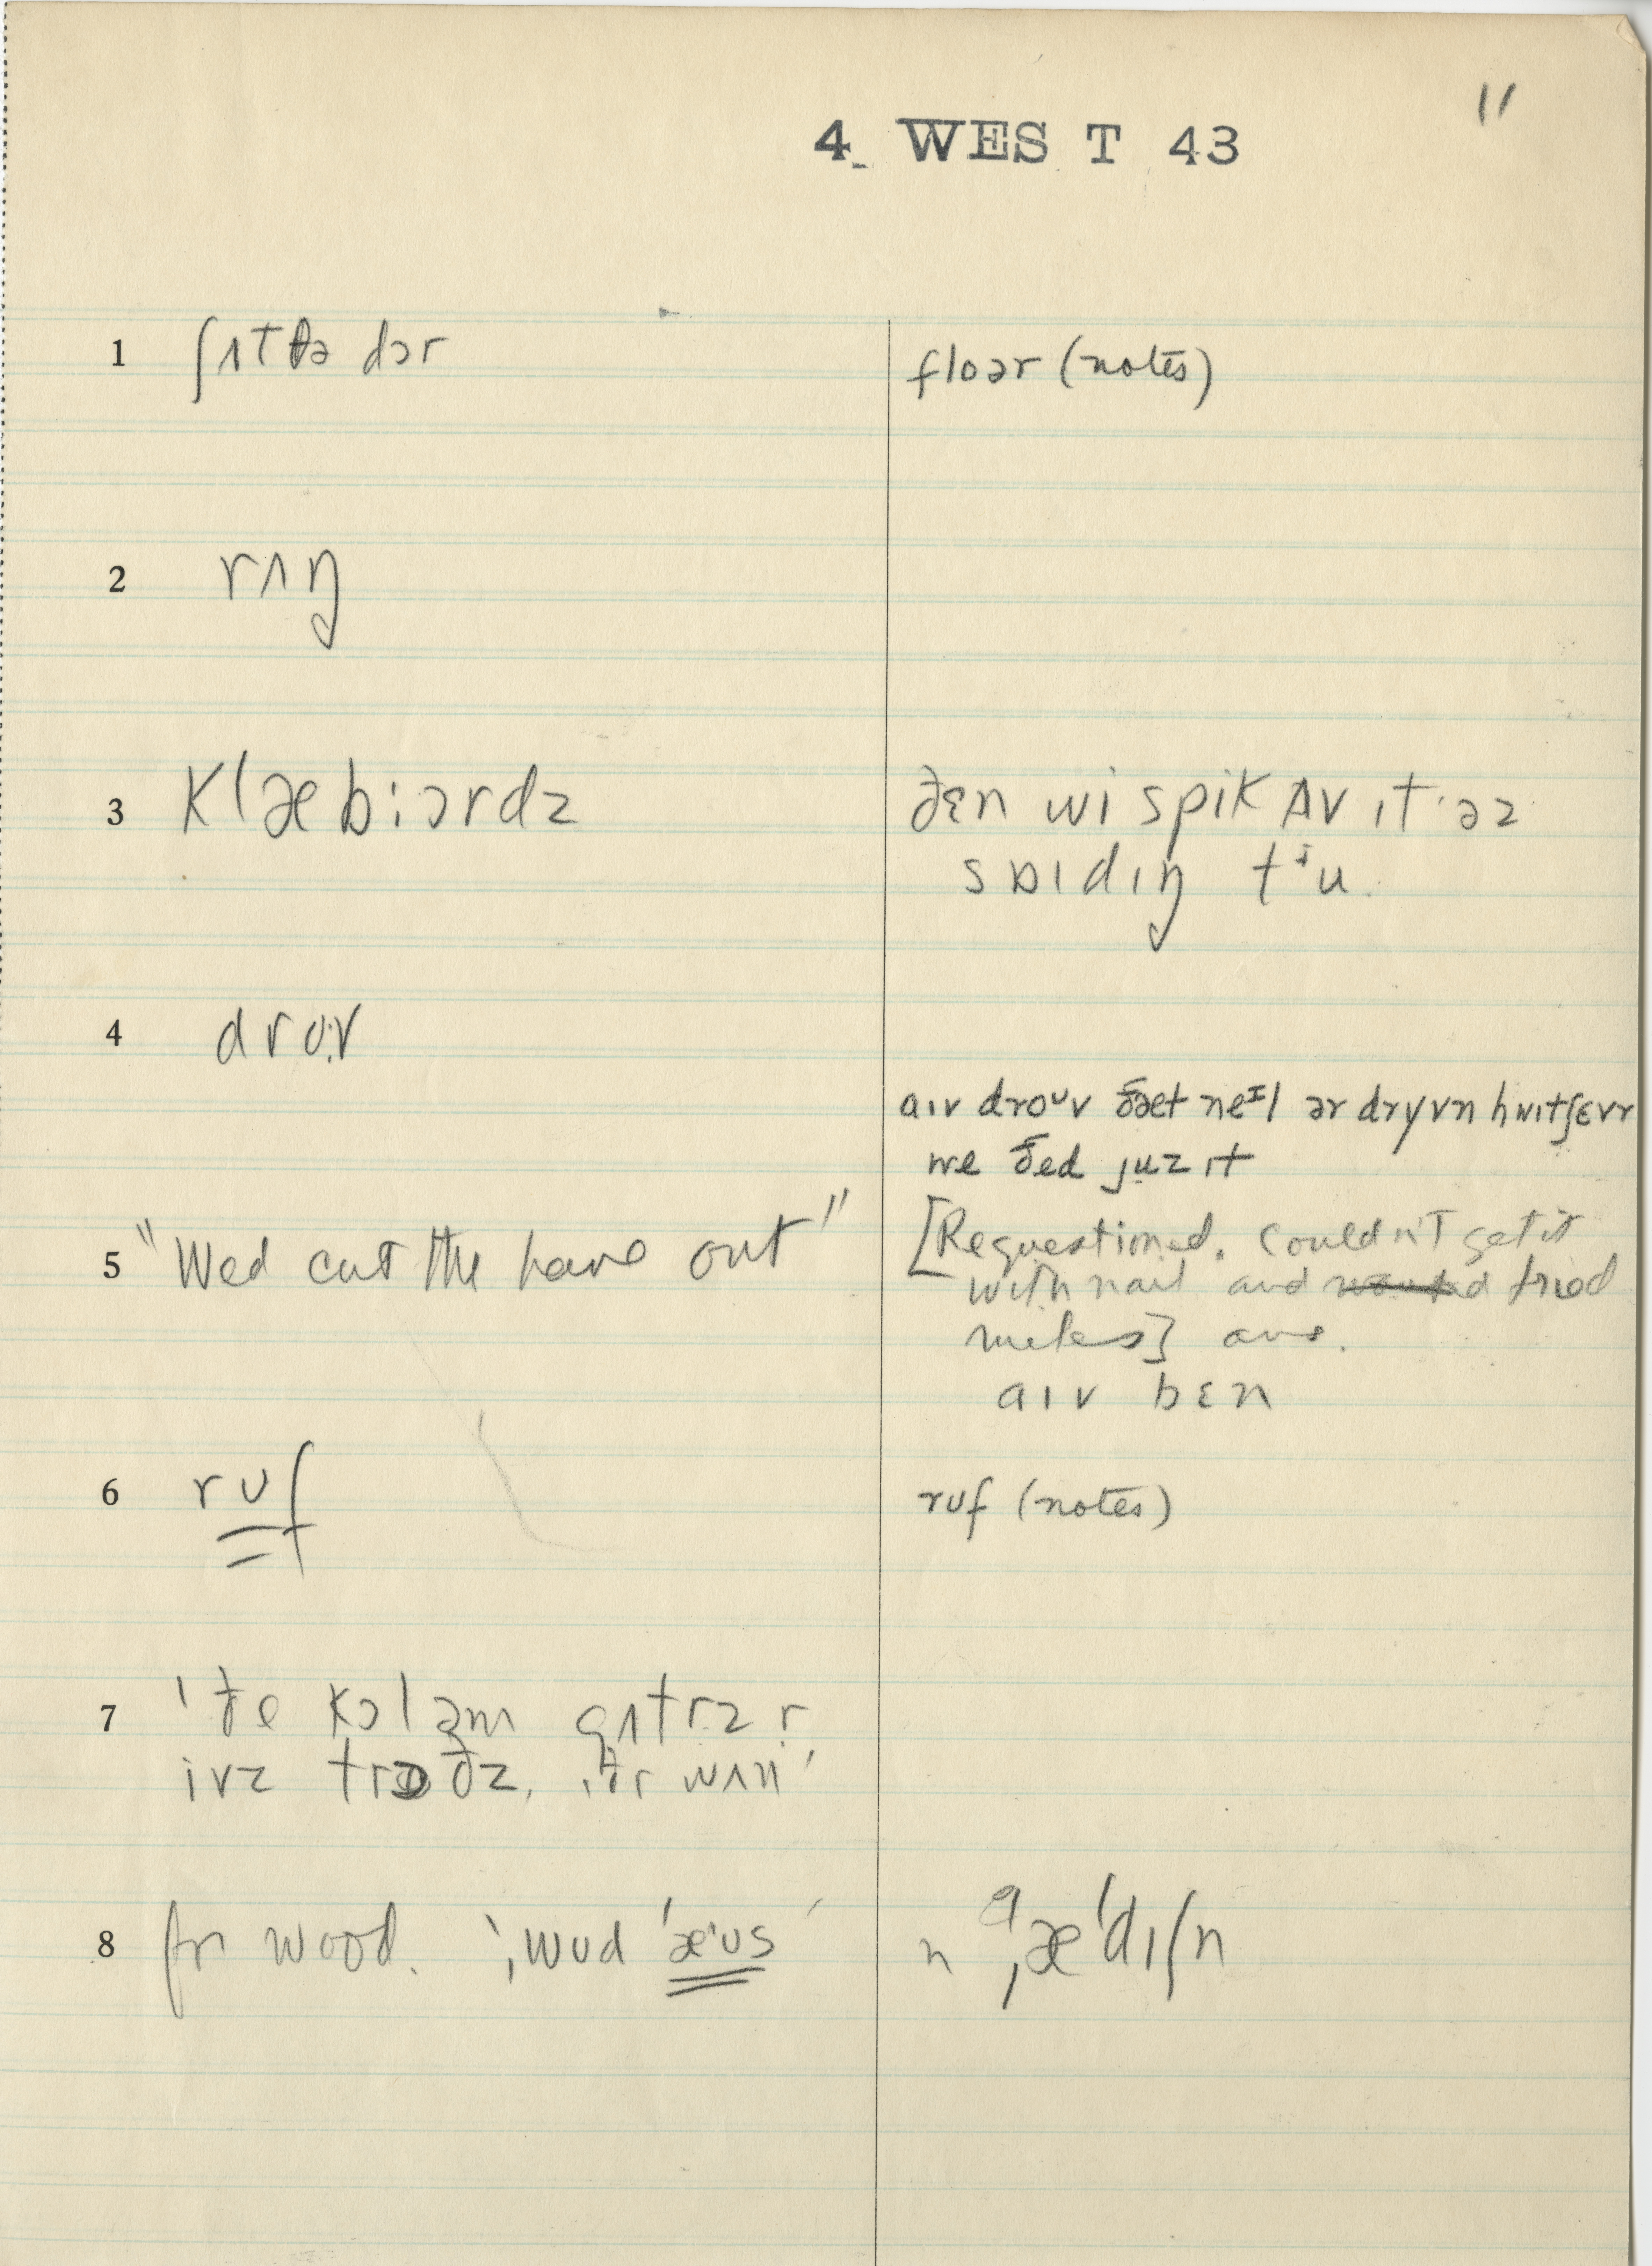 11
4 WEST 43
1 ʃʌt ðə dɔr
floər (notes)
2 rʌŋ
3 klæb:ɔrdz
ðɛn wi spik ʌv ɪt əz
sɒɪdɪŋ tᶤu.
4 drʊ:v
aɪv droᶸv ðæt neᶦl ər dryvn hwɪtʃɛvr
we ðed juz ɪt
5 "Wed cut the out"
[Requestioned. Couldn't get it
with nail and tried
] ans.
aɪv bɛn
6 rʊf
rʊf (notes)
7 'ðe kɔl əm gʌtrz r
ivz trɔðz, ðr wʌn'
8 for wood. ‘ˌwʊd ˈæᶦʊs’
n ə ˌæˈdɪʃn